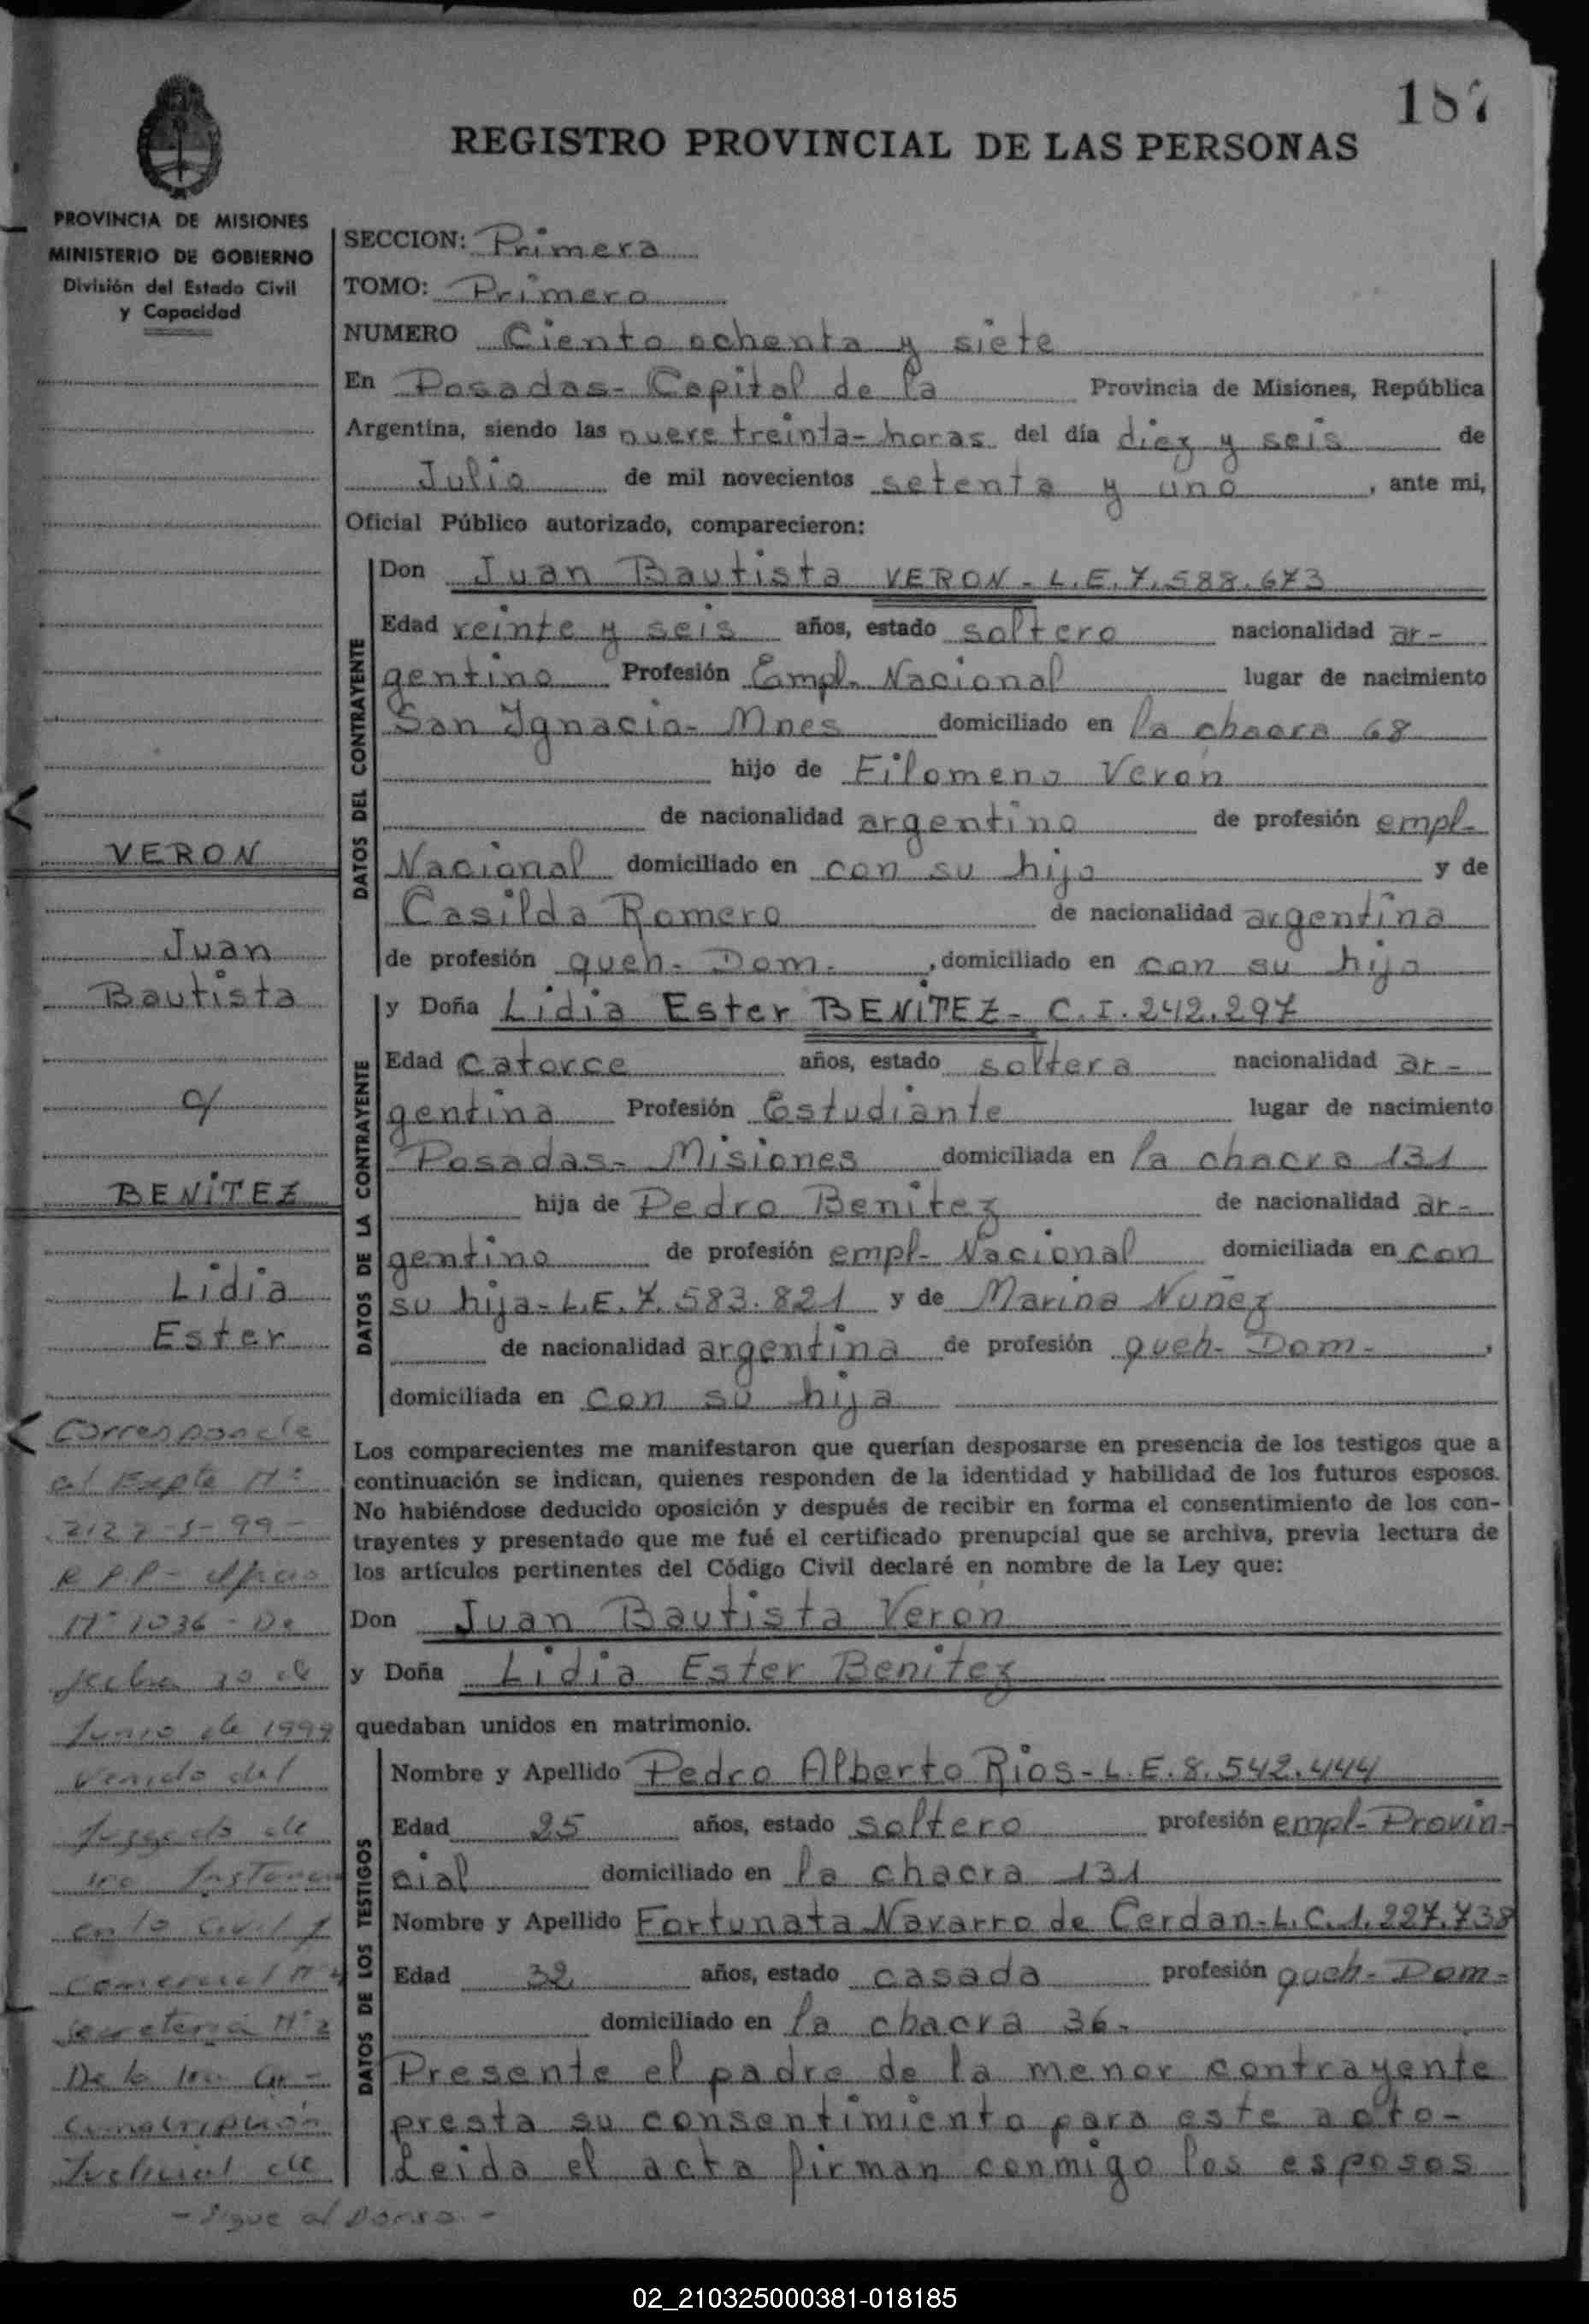 187
REGISTRO PROVINCIAL DE LAS PERSONAS
PROVINCIA DE MISIONES
MINISTERIO DE GOBIERNO
División del Estado Civil
y Capacidad
SECCION: Primera
TOMO: Primero
NUMERO Ciento ochenta y siete
En Posadas- Capital de la Provincia de Misiones, República
Argentina, siendo las nueve treinta- horas del día diez y seis de
Julio de mil novecientos setenta y uno, ante mi,
Oficial Público autorizado, comparecieron:
DATOS DEL CONTRAYENTE
Don Juan Bautista VERON - L.E. 7.588.673
Edad veinte y seis años, estado soltero nacionalidad ar-
gentino Profesión Empl- Nacional lugar de nacimiento
San Ignacio- Mnes domiciliado en la chacra 68
hijo de Filomeno Veron
de nacionalidad argentino de profesión empl-
Nacional domiciliado en con su hijo y de
Casilda Romero de nacionalidad argentina
de profesión queh- Dom-, domiciliado en con su hijo
DATOS DE LA CONTRAYENTE
y Doña Lidia Ester BENITEZ- C.I. 242.297
Edad catorce años, estado soltera nacionalidad ar-
gentina Profesión Estudiante lugar de nacimiento
Posadas- Misiones domiciliada en la chacra 131
hija de Pedro Benitez de nacionalidad ar-
gentino de profesión empl- Nacional domiciliada en con
su hija- L.E. 7.583.821 y de Marina Nuñez
de nacionalidad argentina de profesión queh- Dom-,
domiciliada en con su hija
Los comparecientes me manifestaron que querían desposarse en presencia de los testigos que a
continuación se indican, quienes responden de la identidad y habilidad de los futuros esposos.
No habiéndose deducido oposición y después de recibir en forma el consentimiento de los con-
trayentes y presentado que me fué el certificado prenupcial que se archiva, previa lectura de
los artículos pertinentes del Código Civil declaré en nombre de la Ley que:
Don Juan Bautista Veron
y Doña Lidia Ester Benitez
quedaban unidos en matrimonio.
DATOS DE LOS TESTIGOS
Nombre y Apellido Pedro Alberto Rios- L.E. 8.542.444
Edad 25 años, estado soltero profesión empl- Provin-
cial domiciliado en la chacra 131
Nombre y Apellido Fortunata Navarro de Cerdan- L.C. 1.227.738
Edad 32 años, estado casada profesión queh- Dom-
domiciliado en la chacra 36-
Presente el padre de la menor contrayente
presta su consentimiento para este acto-
Leida el acta firman conmigo los esposos
VERON
Juan
Bautista
c/
BENITEZ
Lidia
Ester
Corresponde
al Expte Nº
99-
RPP- Oficio
Nº 1036- De
fecha de
Junio de 1999
Venido del
Juzgado de
1ra Instancia
en lo Civil y
Comercial Nº 4
Secretaria Nº 2
De la 1ra Cir-
cunscripción
Judicial de
- Sigue al Dorso -
02_210325000381-018185